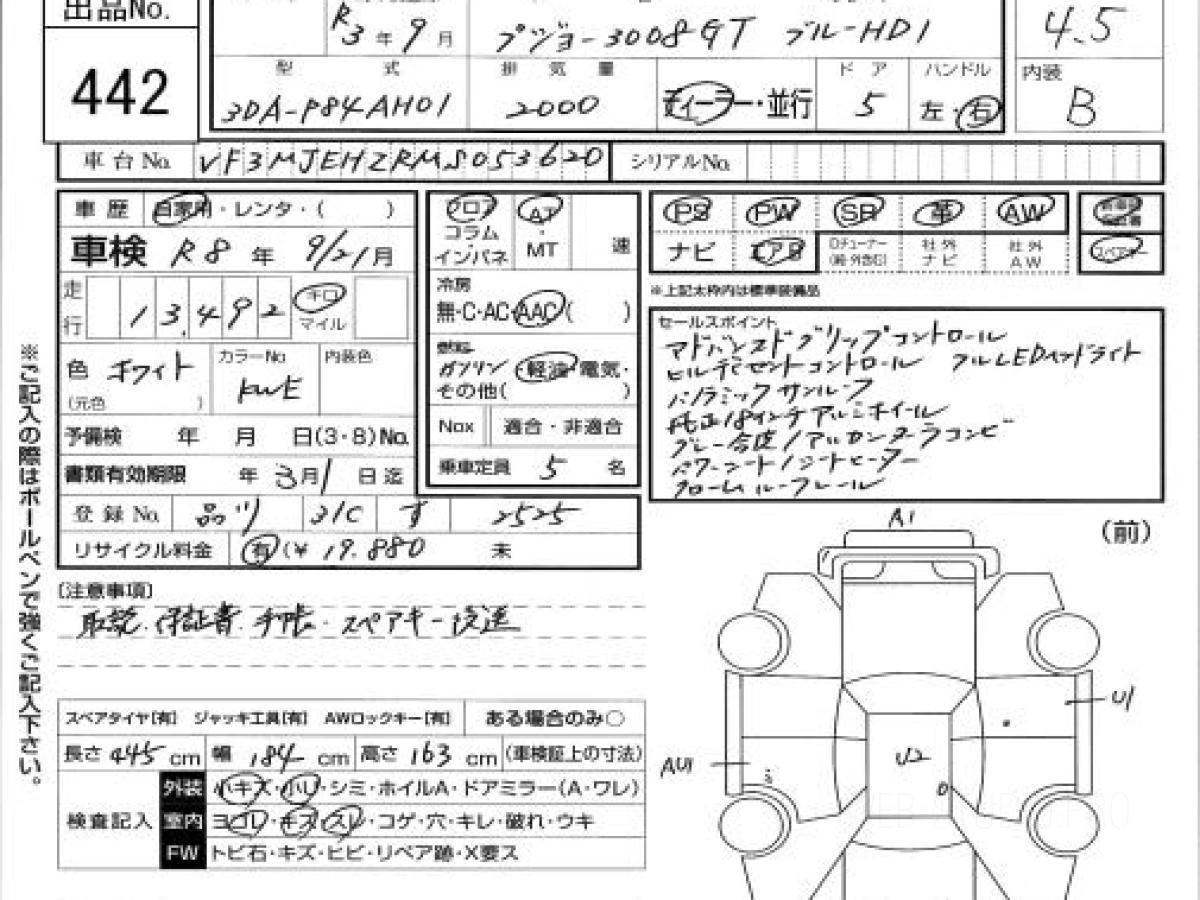 出品No.
442
R3年9月 プジョー3008GT ブルーHDI 4.5
型式 排気量 ドア ハンドル 内装
3DA-P84AH01 2000 ディーラー・並行 5 左・右 B
車台No. VF3MJEHZRMS053620 シリアルNo.
車歴 自家用・レンタ・( )
車検 R8年 9/21月
走行 13,492 キロ マイル
色 ホワイト カラーNo KWE 内装色
(元色 )
予備検 年 月 日(3・8)No.
書類有効期限 年 3月1日迄
登録No. 品川 31C す 2525
リサイクル料金 有 (¥ 19.880 未
フロア コラム インパネ
AT・MT 速
冷房
無・C・AC・AAC( )
燃料
ガソリン・軽油・電気・
その他( )
Nox 適合・非適合
乗車定員 5 名
PS PW SR 革 AW
ナビ エアB Dチューナー 社外ナビ 社外AW スペアキー
※上記太枠内は標準装備品
セールスポイント
アドバンスドグリップコントロール
ヒルディセントコントロール フルLEDヘッドライト
パノラミックサンルーフ
純正18インチアルミホイール
グレー合皮/アルカンターラコンビ
パワーシート/シートヒーター
クロームルーフレール
※ご記入の際はボールペンで強くご記入下さい。
[注意事項]
取説・保証書・手帳・スペアキー後送
スペアタイヤ[有] ジャッキ工具[有] AWロックキー[有] ある場合のみ○
長さ 445 cm 幅 184 cm 高さ 163 cm (車検証上の寸法)
検査記入
外装 小キズ・小U・シミ・ホイルA・ドアミラー(A・ワレ)
室内 ヨゴレ・キズ・スレ・コゲ・穴・キレ・破れ・ウキ
FW トビ石・キズ・ヒビ・リペア跡・X要ス
A1
(前)
U1
AU1
U2